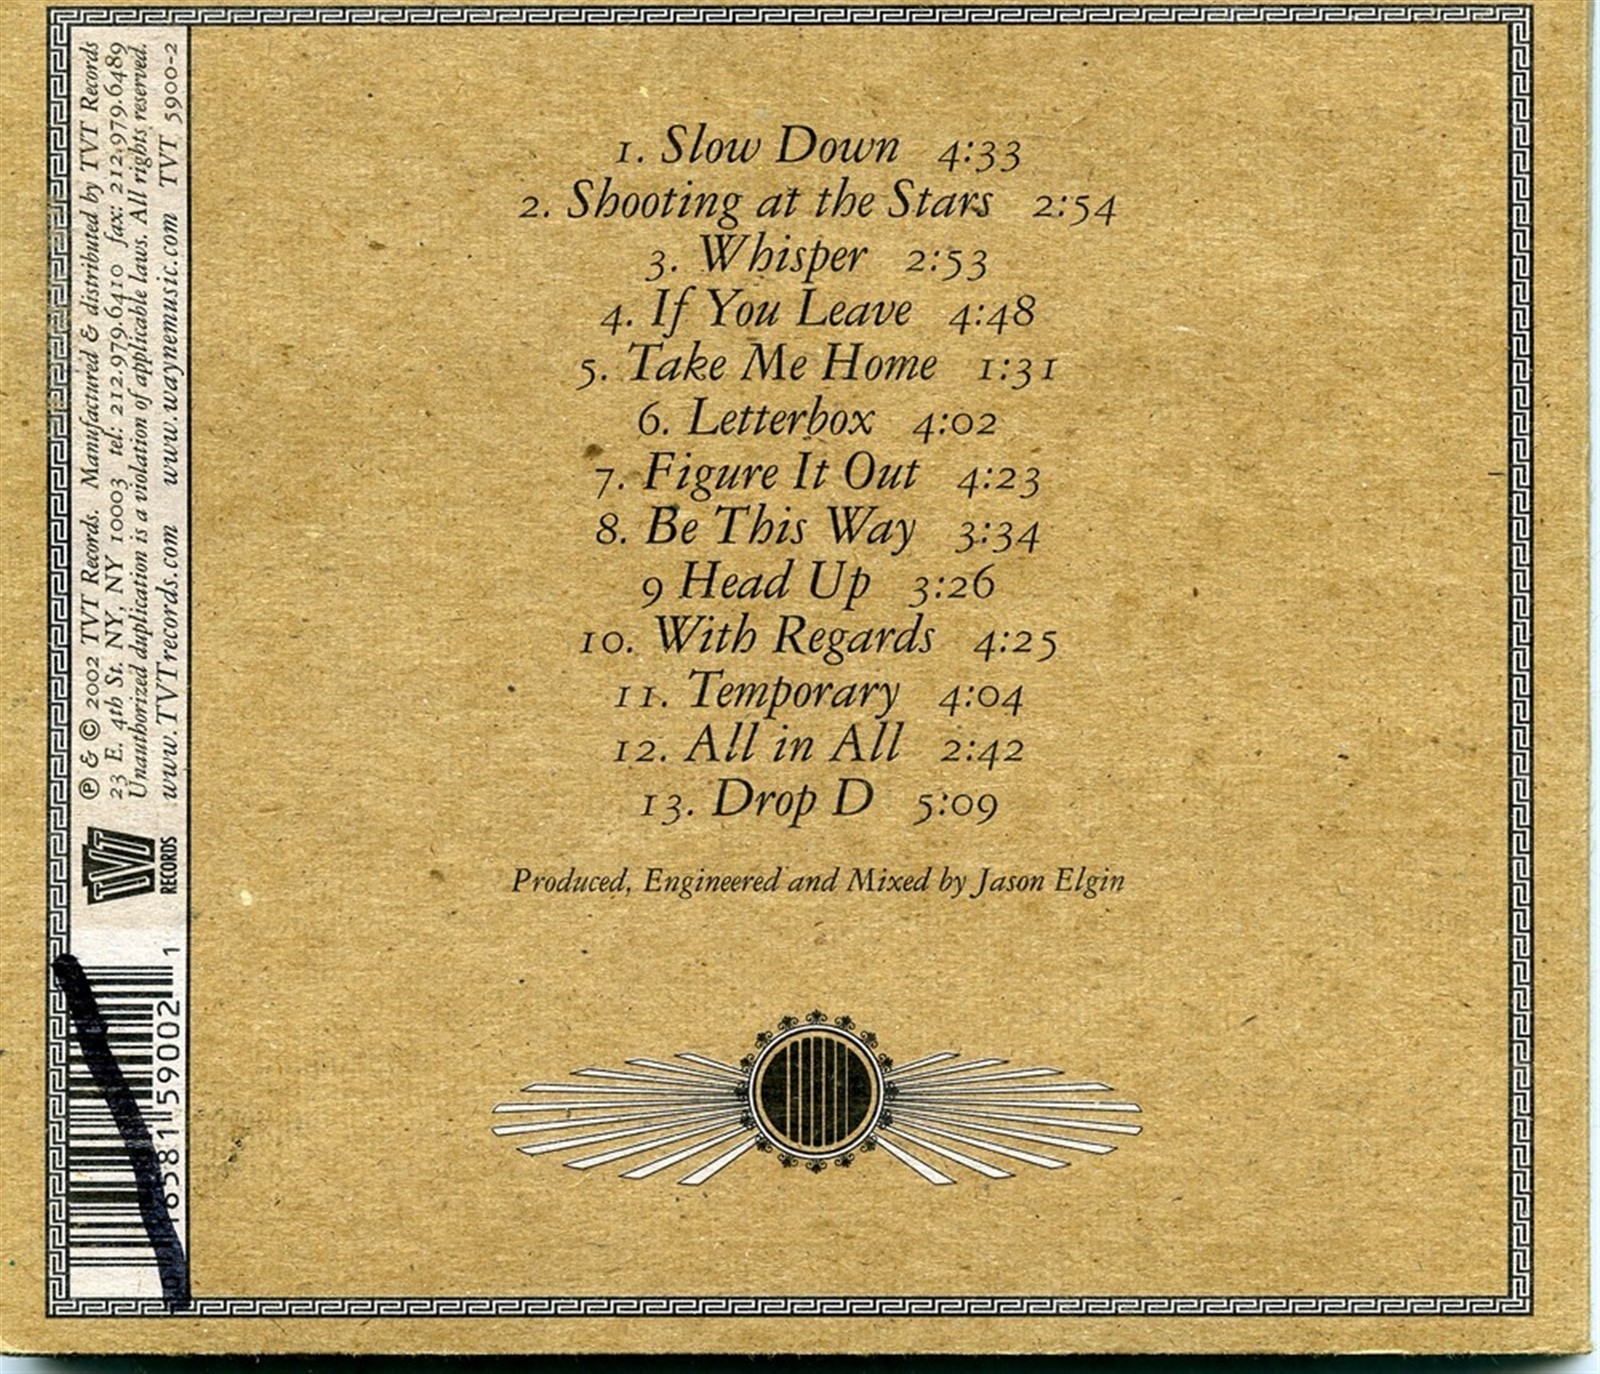 1. Slow Down 4:33
2. Shooting at the Stars 2:54
3. Whisper 2:53
4. If You Leave 4:48
5. Take Me Home 1:31
6. Letterbox 4:02
7. Figure It Out 4:23
8. Be This Way 3:34
9 Head Up 3:26
10. With Regards 4:25
11. Temporary 4:04
12. All in All 2:42
13. Drop D 5:09
Produced, Engineered and Mixed by Jason Elgin
℗ & © 2002 TVT Records. Manufactured & distributed by TVT Records
23 E. 4th St. NY, NY 10003 tel: 212.979.6410 fax: 212.979.6489
Unauthorized duplication is a violation of applicable laws. All rights reserved.
www.TVTrecords.com www.waynemusic.com TVT 5900-2
TVT
RECORDS
16581 59002 1